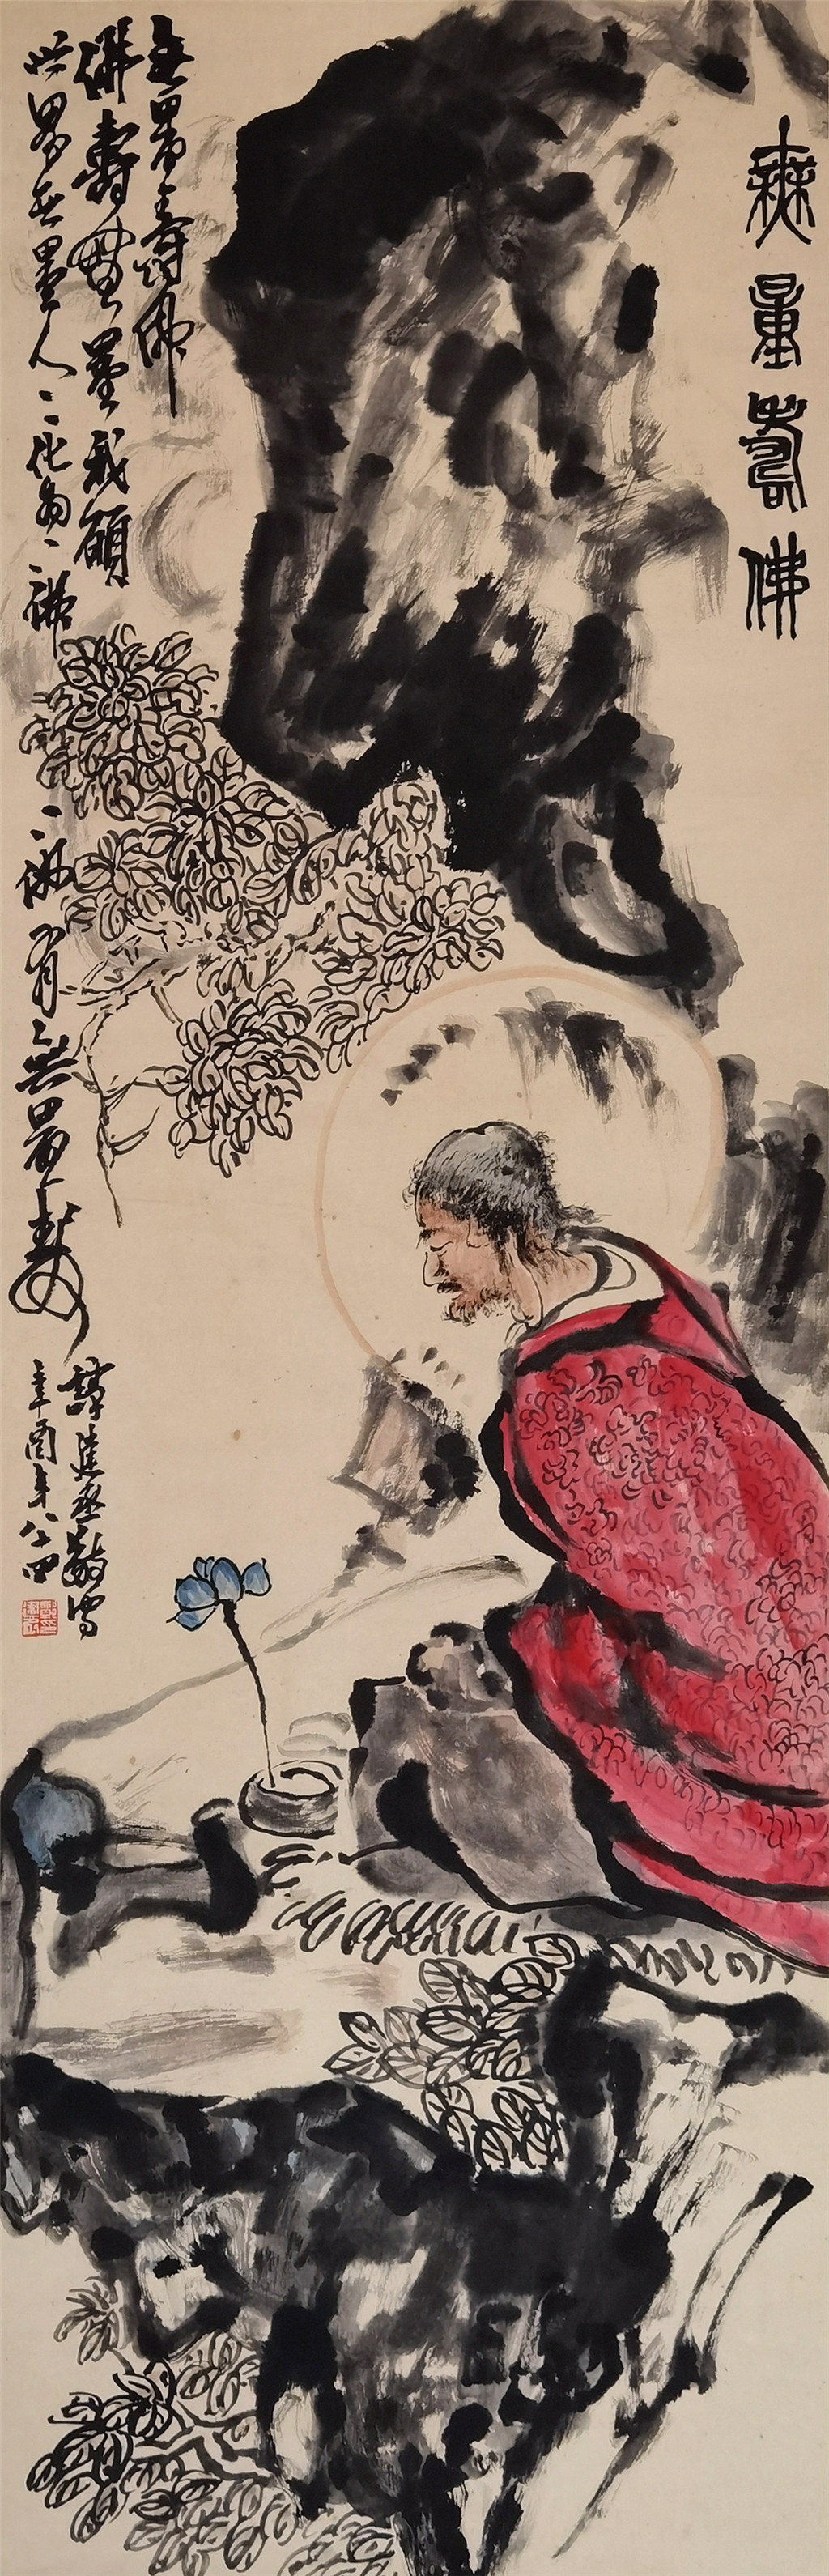 無量壽佛
无量壽佛
佛壽無量我願
世界无量人〻化為〻佛
〻佛有無量壽
譚建丞敬寫
辛酉年八十四